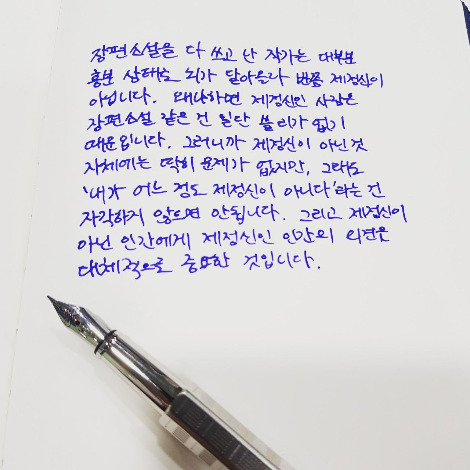 장편소설을 다 쓰고 난 작가는 대부분
흥분 상태로 뇌가 달아올라 반쯤 제정신이
아닙니다. 왜냐하면 제정신인 사람은
장편소설 같은 건 일단 쓸 리가 없기
때문입니다. 그러니까 제정신이 아닌 것
자체에는 딱히 문제가 없지만, 그래도
'내가 어느 정도 제정신이 아니다'라는 건
자각하지 않으면 안됩니다. 그리고 제정신이
아닌 인간에게 제정신인 인간의 의견은
대체적으로 중요한 것입니다.